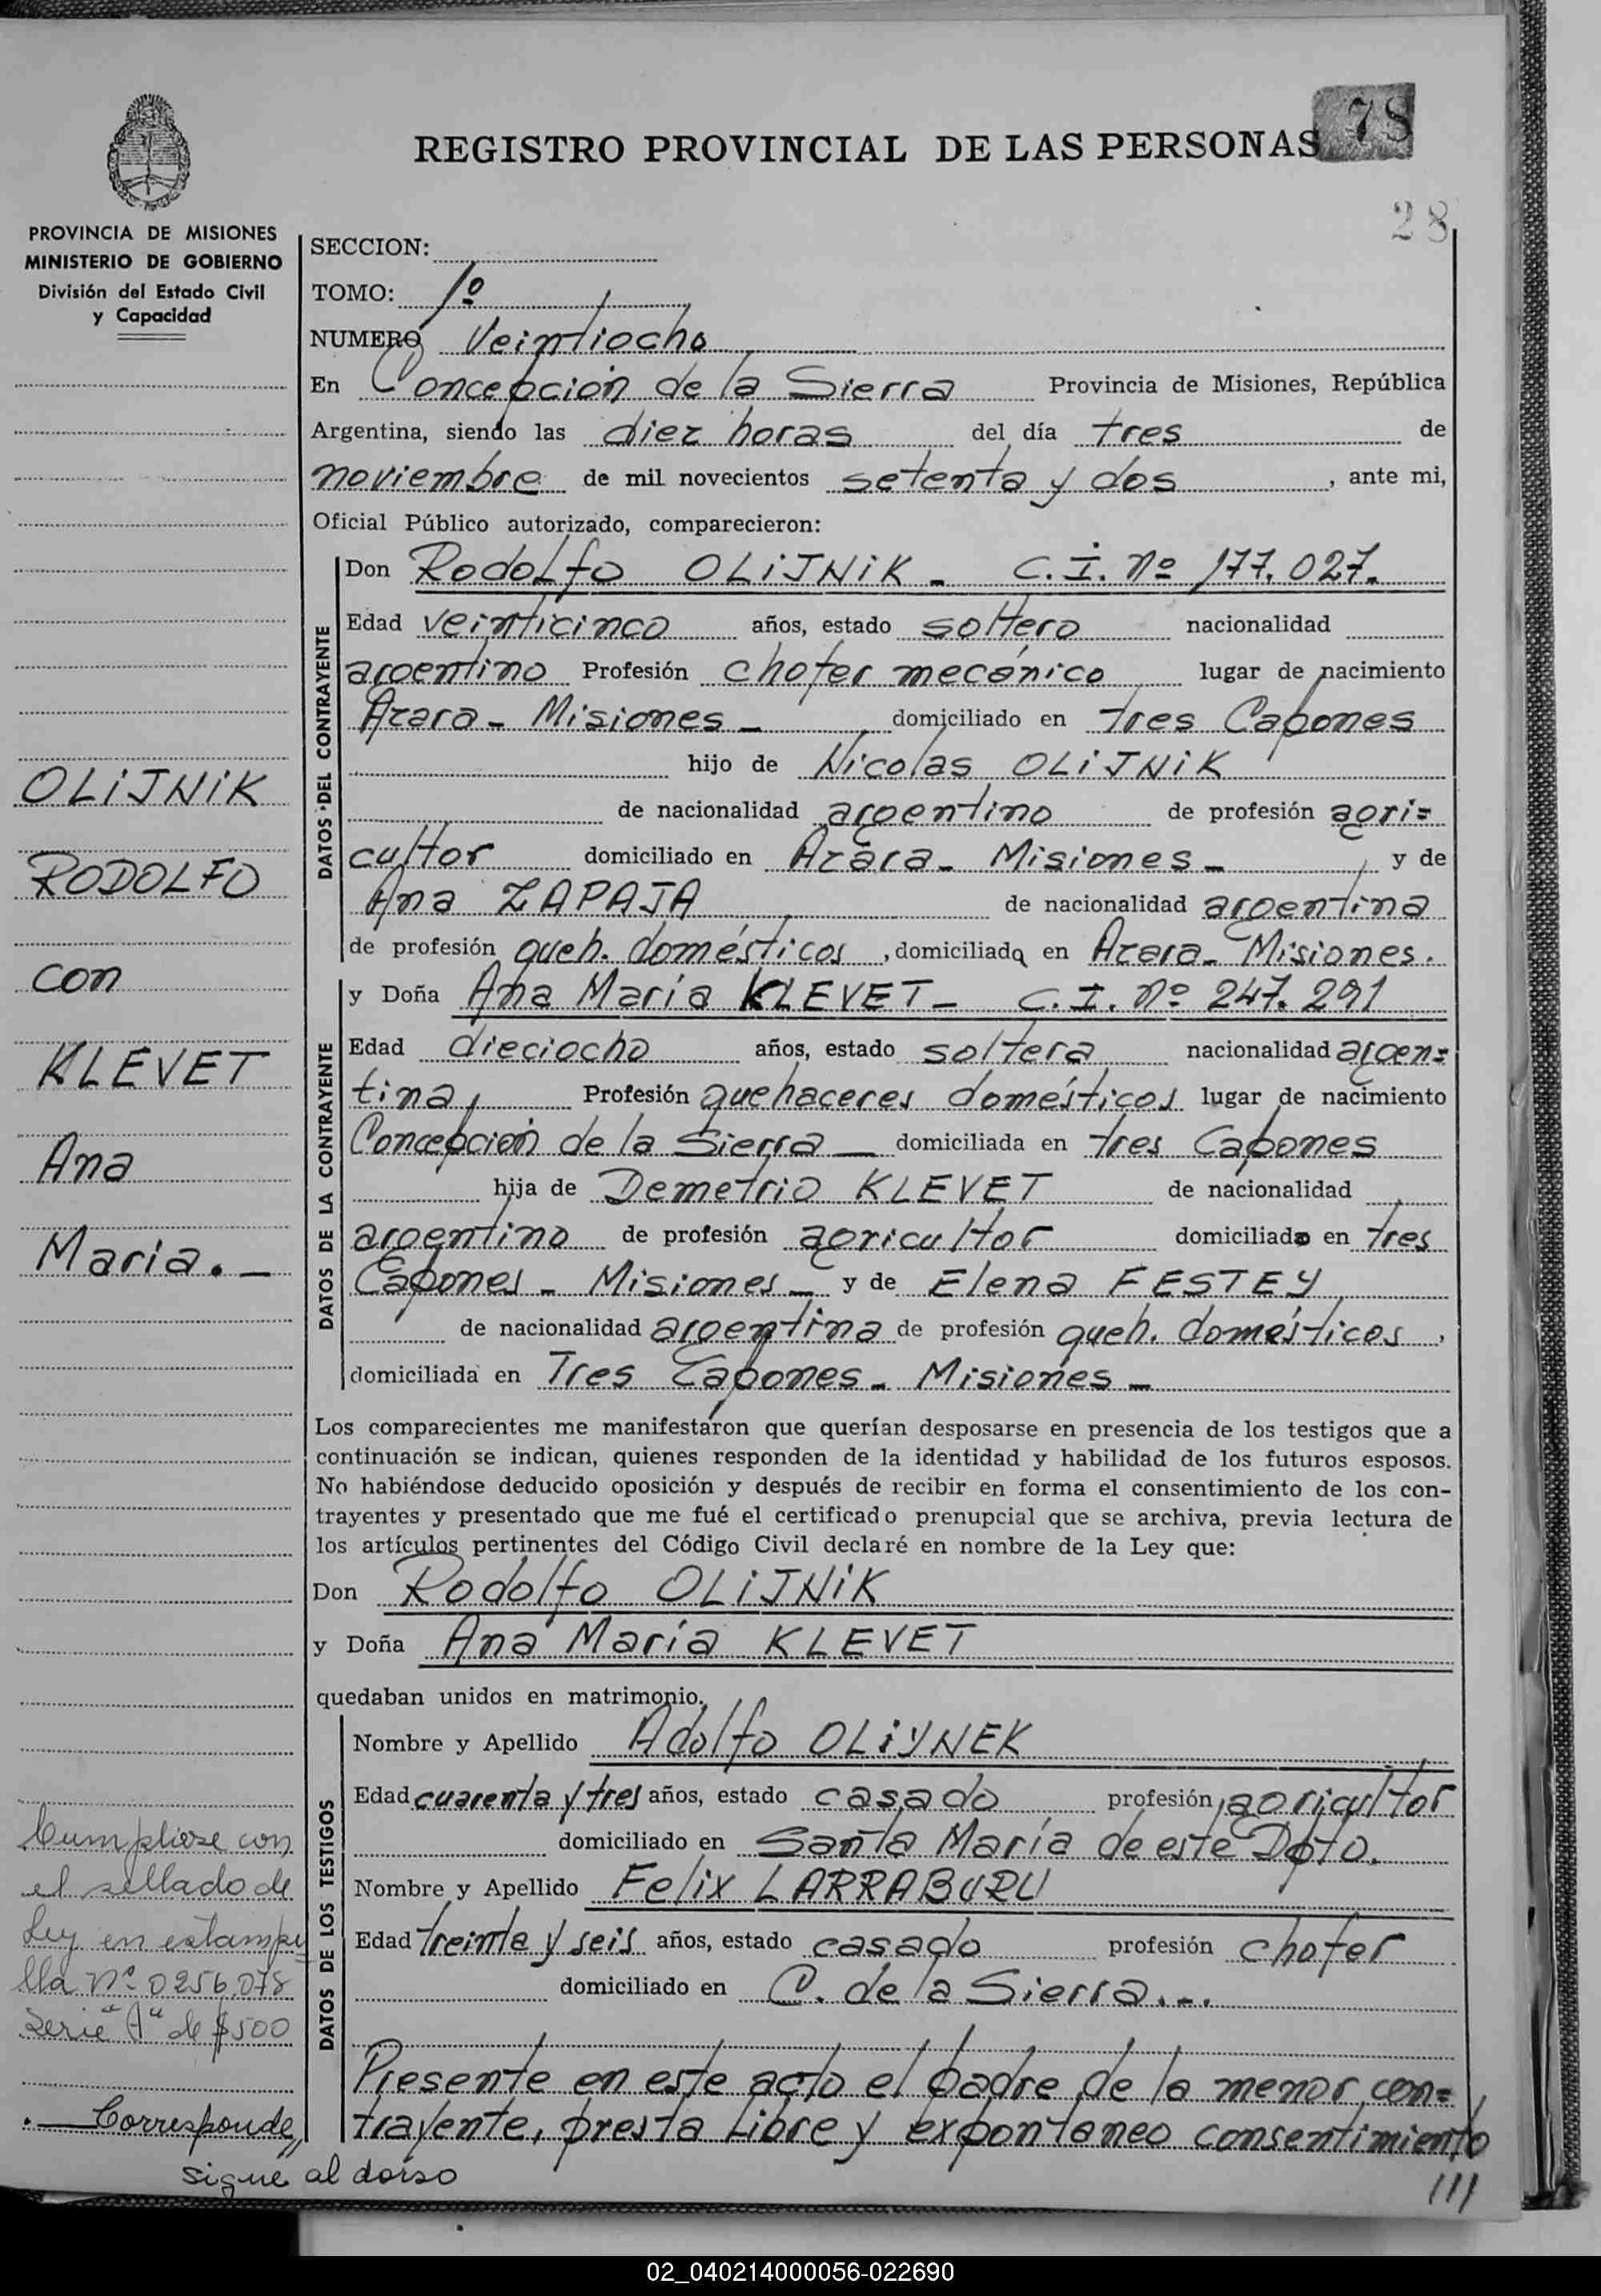 REGISTRO PROVINCIAL DE LAS PERSONAS
78
28
PROVINCIA DE MISIONES
MINISTERIO DE GOBIERNO
División del Estado Civil
y Capacidad
OLIJNIK
RODOLFO
con
KLEVET
Ana
Maria. —
Cumpliose con
el sellado de
Ley en estampi
lla Nº 0256.078
Serie "A" de $500
. — Corresponde
SECCION:
TOMO: 1º
NUMERO Veintiocho
En Concepción de la Sierra Provincia de Misiones, República
Argentina, siendo las diez horas del día tres de
noviembre de mil novecientos setenta y dos , ante mi,
Oficial Público autorizado, comparecieron:
DATOS DEL CONTRAYENTE
Don Rodolfo OLIJNIK - C.I. Nº 177.027.
Edad veinticinco años, estado soltero nacionalidad
argentino Profesión chofer mecánico lugar de nacimiento
Azara - Misiones - domiciliado en tres Capones
hijo de Nicolas OLIJNIK
de nacionalidad argentino de profesión agri=
cultor domiciliado en Azara - Misiones - y de
Ana ZAPAJA de nacionalidad argentina
de profesión queh. domésticos , domiciliada en Azara - Misiones.
DATOS DE LA CONTRAYENTE
y Doña Ana María KLEVET - C.I. Nº 247.291
Edad dieciocho años, estado soltera nacionalidad argen=
tina, Profesión quehaceres domésticos lugar de nacimiento
Concepción de la Sierra — domiciliada en tres Capones
hija de Demetrio KLEVET de nacionalidad
argentino de profesión agricultor domiciliado en tres
Capones - Misiones - y de Elena FESTEY
de nacionalidad argentina de profesión queh. domésticos ,
domiciliada en Tres Capones - Misiones -
Los comparecientes me manifestaron que querían desposarse en presencia de los testigos que a
continuación se indican, quienes responden de la identidad y habilidad de los futuros esposos.
No habiéndose deducido oposición y después de recibir en forma el consentimiento de los con-
trayentes y presentado que me fué el certificado prenupcial que se archiva, previa lectura de
los artículos pertinentes del Código Civil declaré en nombre de la Ley que:
Don Rodolfo OLIJNIK
y Doña Ana María KLEVET
quedaban unidos en matrimonio.
DATOS DE LOS TESTIGOS
Nombre y Apellido Adolfo OLIYNEK
Edad cuarenta y tres años, estado casado profesión agricultor
domiciliado en Santa María de este Dpto.
Nombre y Apellido Felix LARRABURU
Edad treinta y seis años, estado casado profesión chofer
domiciliado en C. de la Sierra.-.
Presente en este acto el padre de la menor con=
trayente, presta libre y expontaneo consentimiento
sigue al dorso
///
02_040214000056-022690